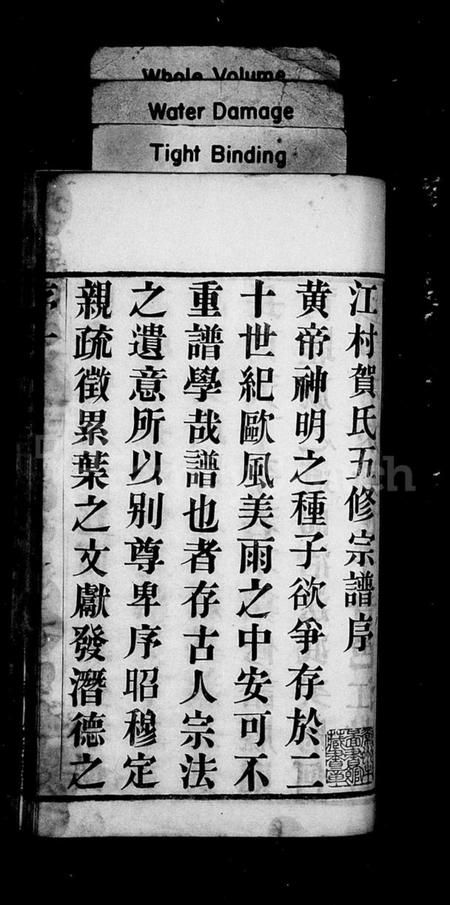 Whole Volume
Water Damage
Tight Binding
江村賀氏五修宗譜序
黃帝神明之種子欲爭存於二
十世紀歐風美雨之中安可不
重譜學哉譜也者存古人宗法
之遺意所以别尊卑序昭穆定
親疏徵累葉之文獻發潛德之
序一